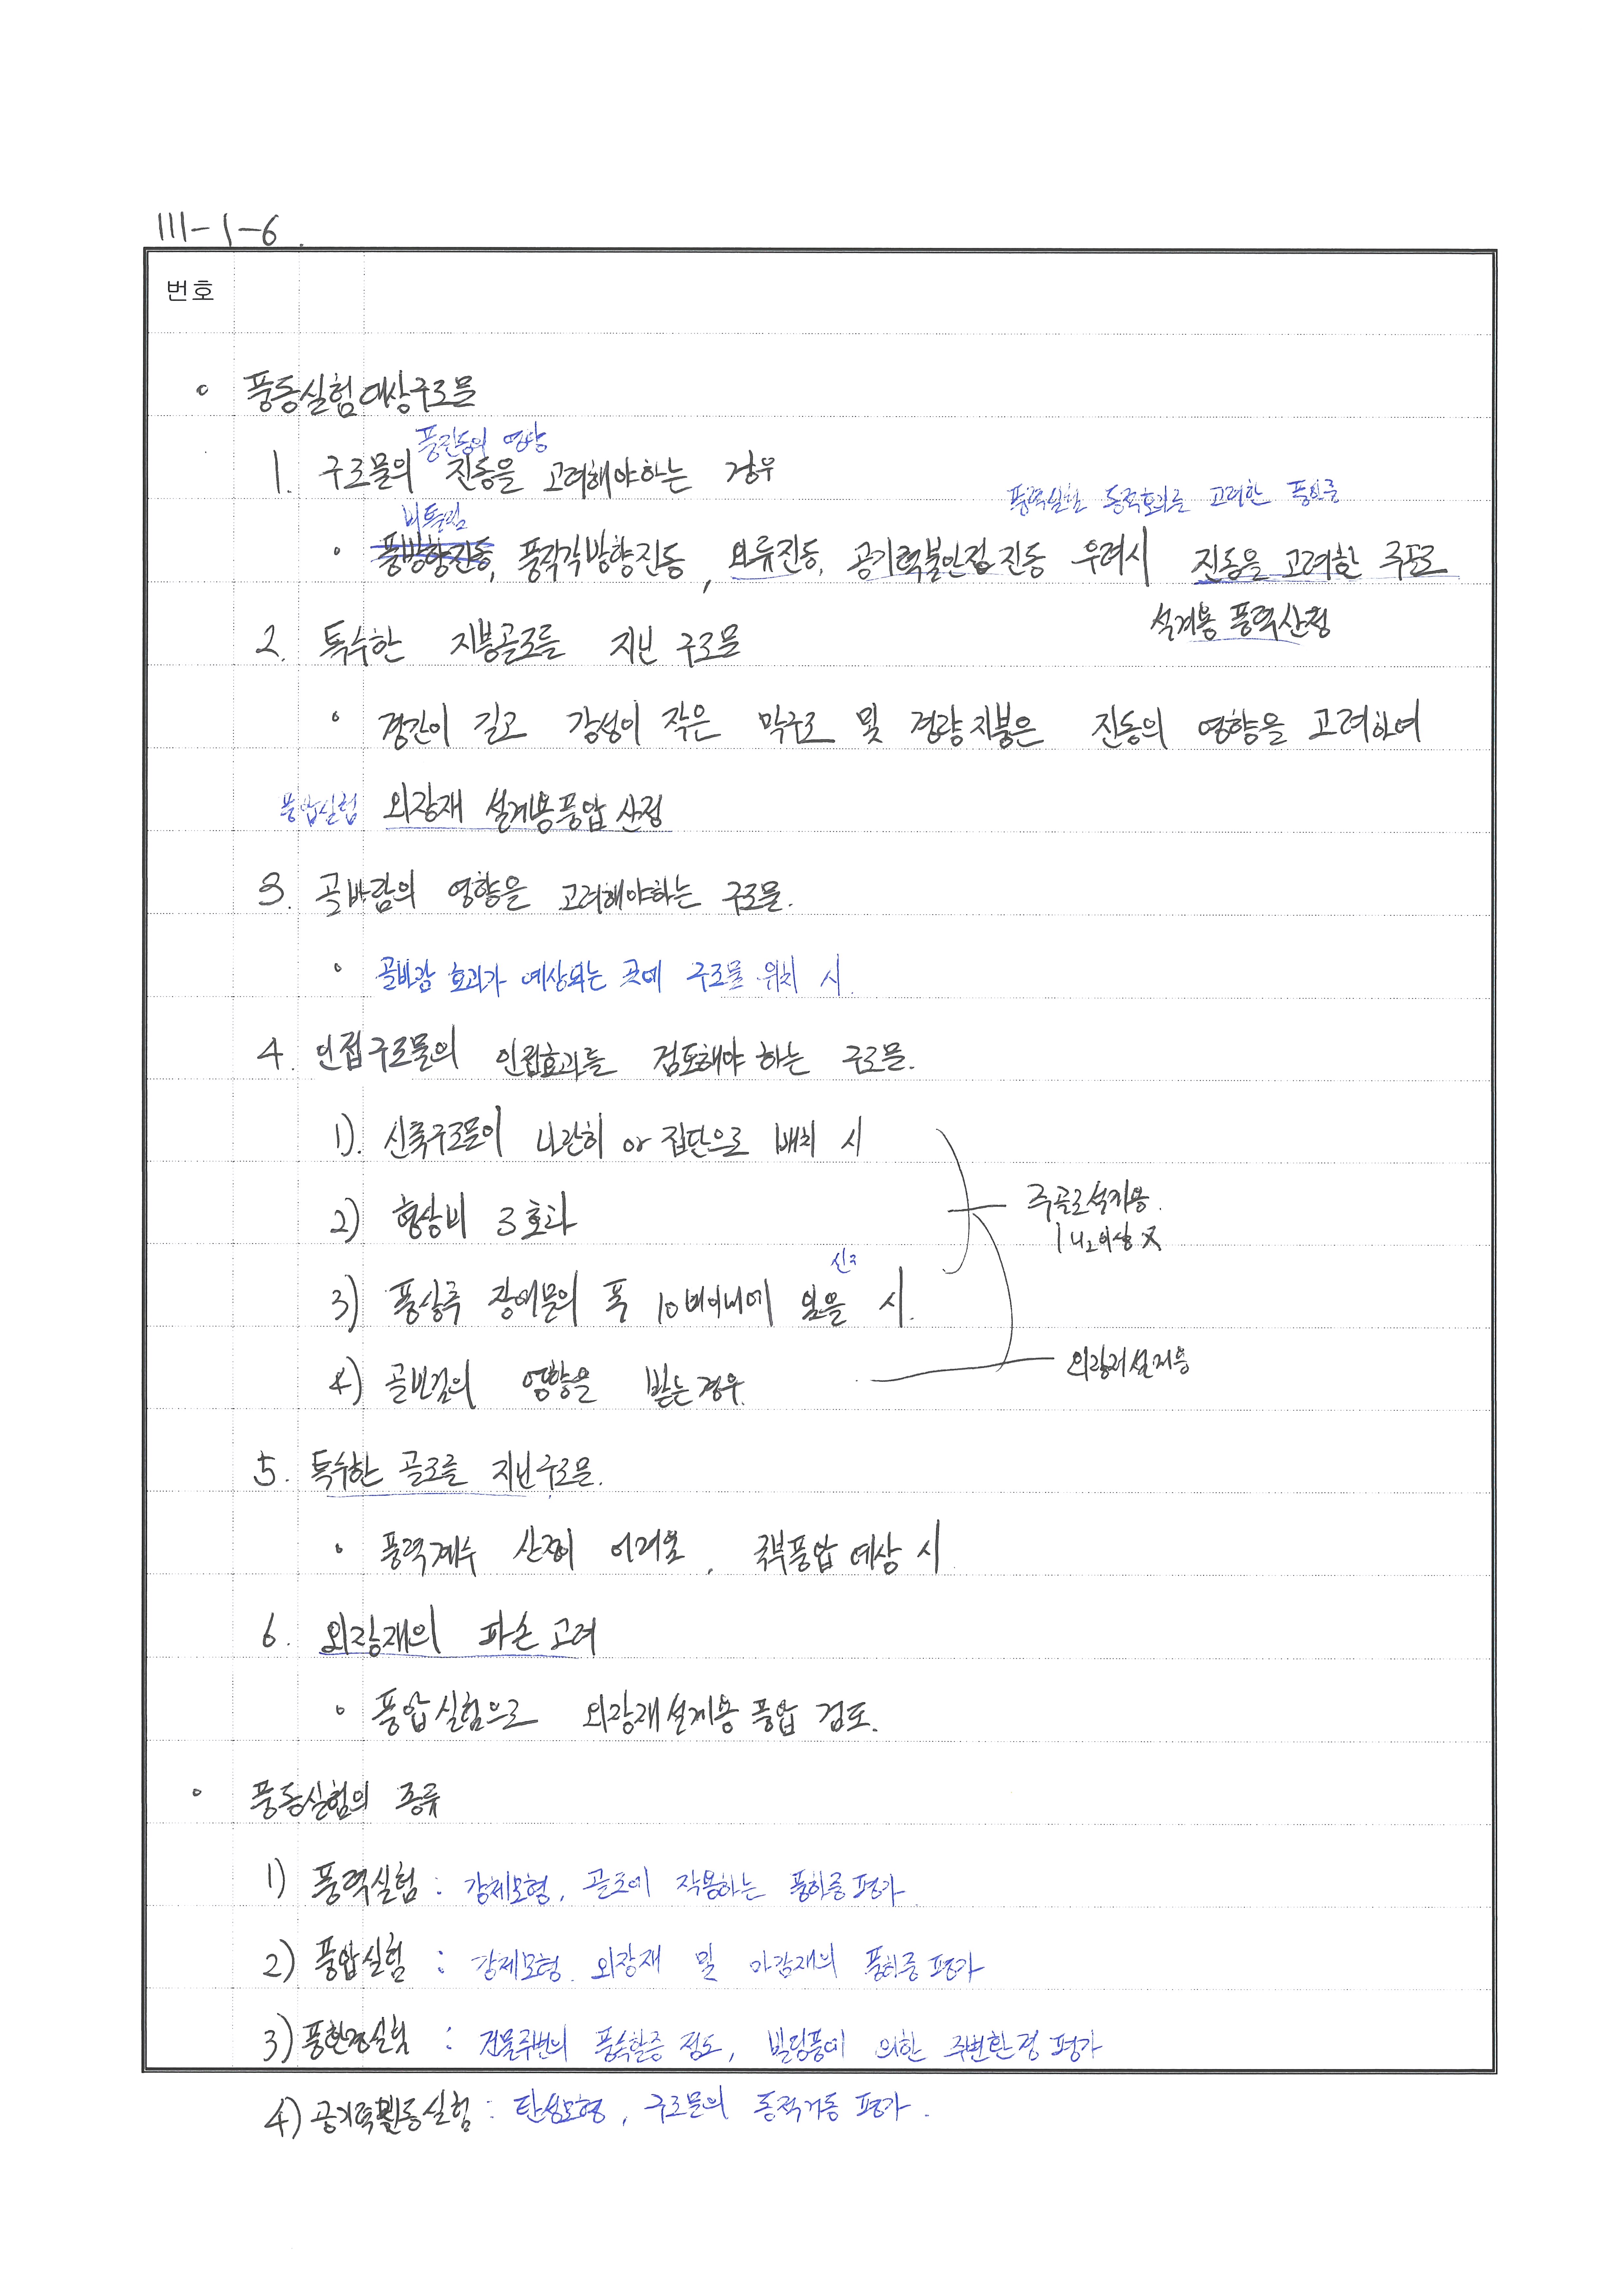 III-1-6.
번호
풍동실험 대상구조물
풍진동의 영향
1. 구조물의 진동을 고려해야하는 경우
풍력실험 동적효과를 고려한 풍하중
비틀림
풍방향진동, 풍직각방향진동, 와류진동, 공기력불안정진동 우려시 진동을 고려한 주골조
설계용 풍력산정
2. 특수한 지붕골조를 지닌 구조물
경간이 길고 강성이 작은 막구조 및 경량지붕은 진동의 영향을 고려하여
풍압실험 외장재 설계용풍압 산정
3. 골바람의 영향을 고려해야하는 구조물.
골바람 효과가 예상되는 곳에 구조물 위치 시.
4. 인접구조물의 인접효과를 검토해야 하는 구조물.
1). 신축구조물이 나란히 or 집단으로 배치 시
2) 형상비 3 초과 주골조설계용.
1 이상 X
신축
3) 풍상측 장애물의 폭 10배이내에 있을 시.
4) 골바람의 영향을 받는경우. 외장재설계용
5. 특수한 골조를 지닌구조물.
풍력계수 산정이 어려움, 국부풍압 예상 시
6. 외장재의 파손 고려
풍압실험으로 외장재설계용 풍압 검토.
풍동실험의 종류
1) 풍력실험 : 강체모형, 골조에 작용하는 풍하중평가
2) 풍압실험 : 강체모형. 외장재 및 마감재의 풍하중평가
3) 풍환경실험 : 건물주변의 풍속할증 정도, 빌딩풍에 의한 주변환경평가
4) 공기력진동실험 : 탄성모형, 구조물의 동적거동 평가.